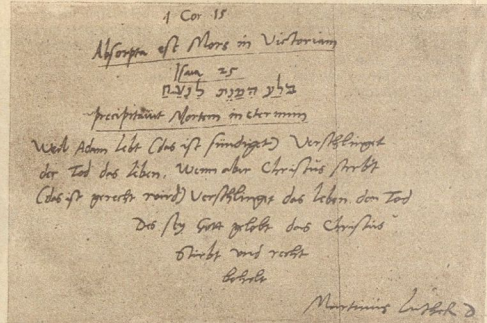 1 Cor 15
Absorpta est Mors in Victoriam
Isaia 25
בלע המות לנצח
Precipitauit Mortem in eternum
Weil Adam lebt (das ist sundiget) Verschlinget
der Tod das leben, Wenn aber Christus stirbt
(das ist gerecht wird) Verschlinget das leben den Tod
Des sey Gott gelobt das Christus
stirbt und recht
behelt
Martinus Luther D